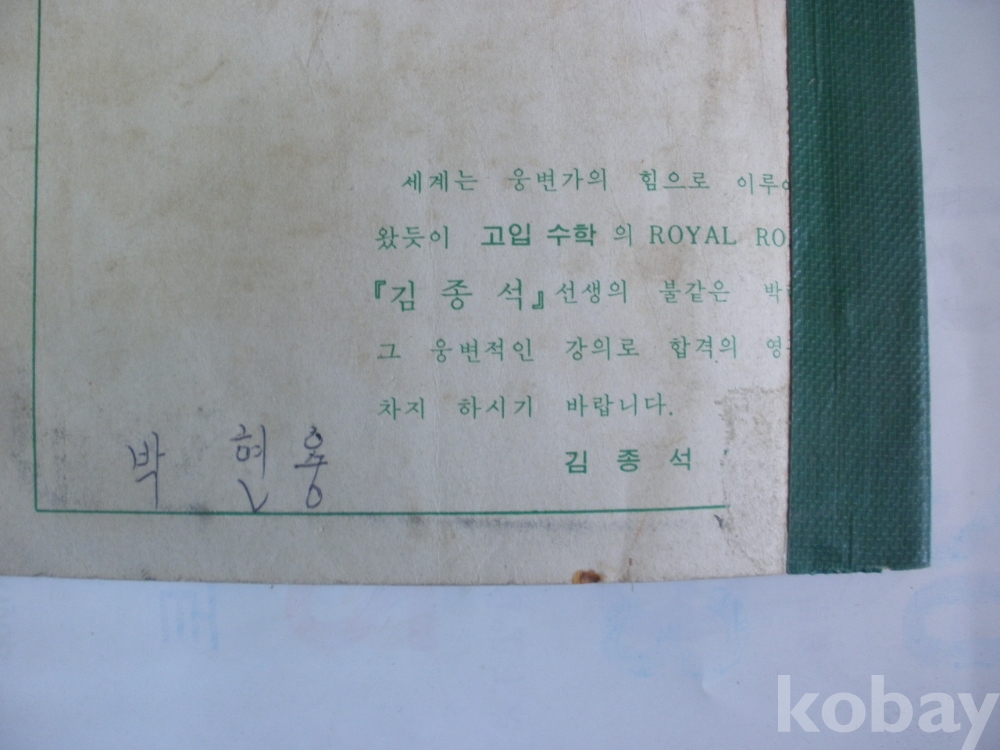 세계는 웅변가의 힘으로 이루어
왔듯이 고입 수학의 ROYAL RO
『김종석』선생의 불같은 박
그 웅변적인 강의로 합격의 영
차지 하시기 바랍니다.
김 종 석
박 현 용
kobay